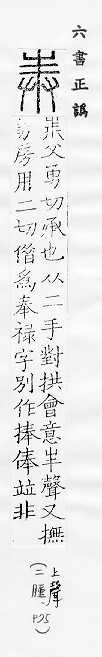 六書正譌
父勇切承也从二手對拱會意丰聲又撫
勇房用二切借爲奉祿字別作捧俸竝非
上聲
(二腫, P.25)